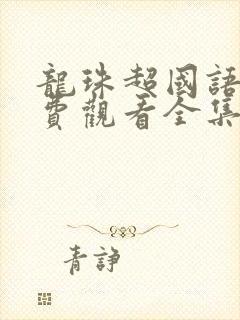 龍珠超國語
費觀看全集
青諍